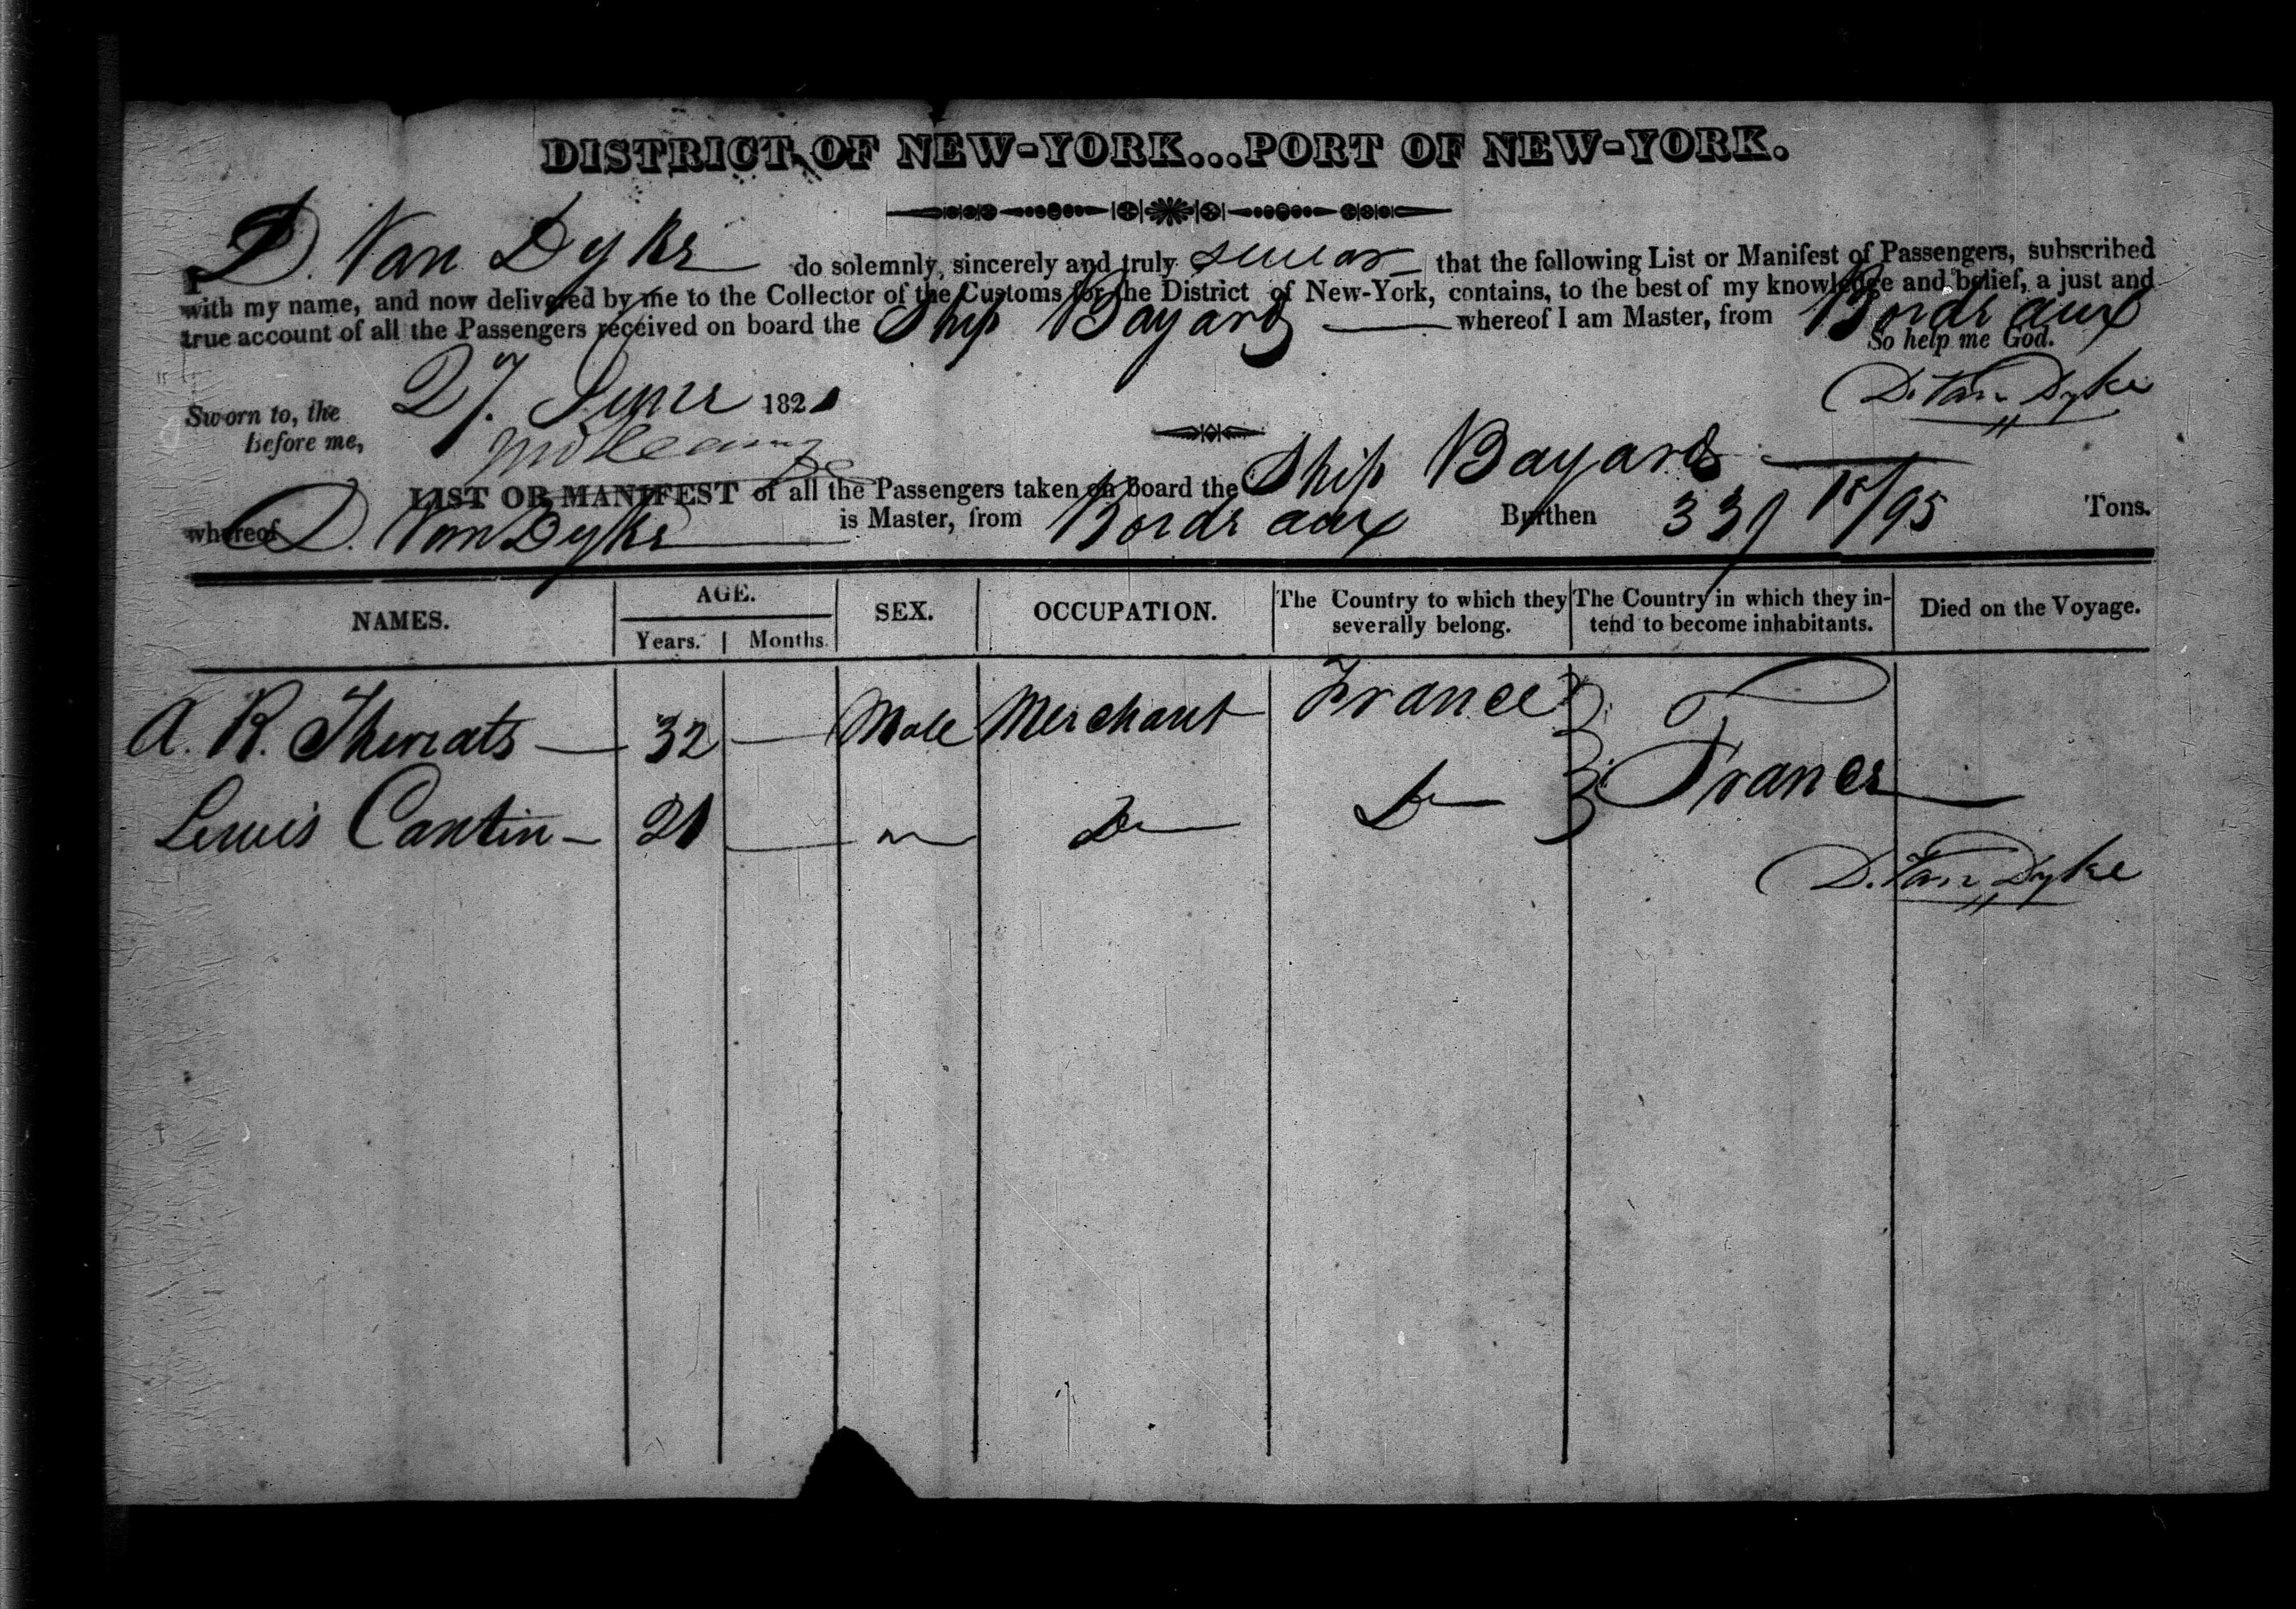 DISTRICT OF NEW-YORK...PORT OF NEW-YORK.
I D. Van Dyke do solemnly, sincerely and truly swear that the following List or Manifest of Passengers, subscribed
with my name, and now delivered by me to the Collector of the Customs for the District of New-York, contains, to the best of my knowledge and belief, a just and
true account of all the Passengers received on board the Ship Bayard whereof I am Master, from Bordeaux
So help me God.
Sworn to, the 27. June 1821
D. Van Dyke
Before me,
LIST OR MANIFEST of all the Passengers taken on board the Ship Bayard
whereof D. Van Dyke is Master, from Bordeaux Burthen 339 15/95 Tons.
NAMES. AGE. SEX. OCCUPATION. The Country to which they severally belong. The Country in which they intend to become inhabitants. Died on the Voyage.
Years. Months.
A. R. 32 — Male Merchant France
France
Lewis Cantin — 21 — " Do Do
D. Van Dyke